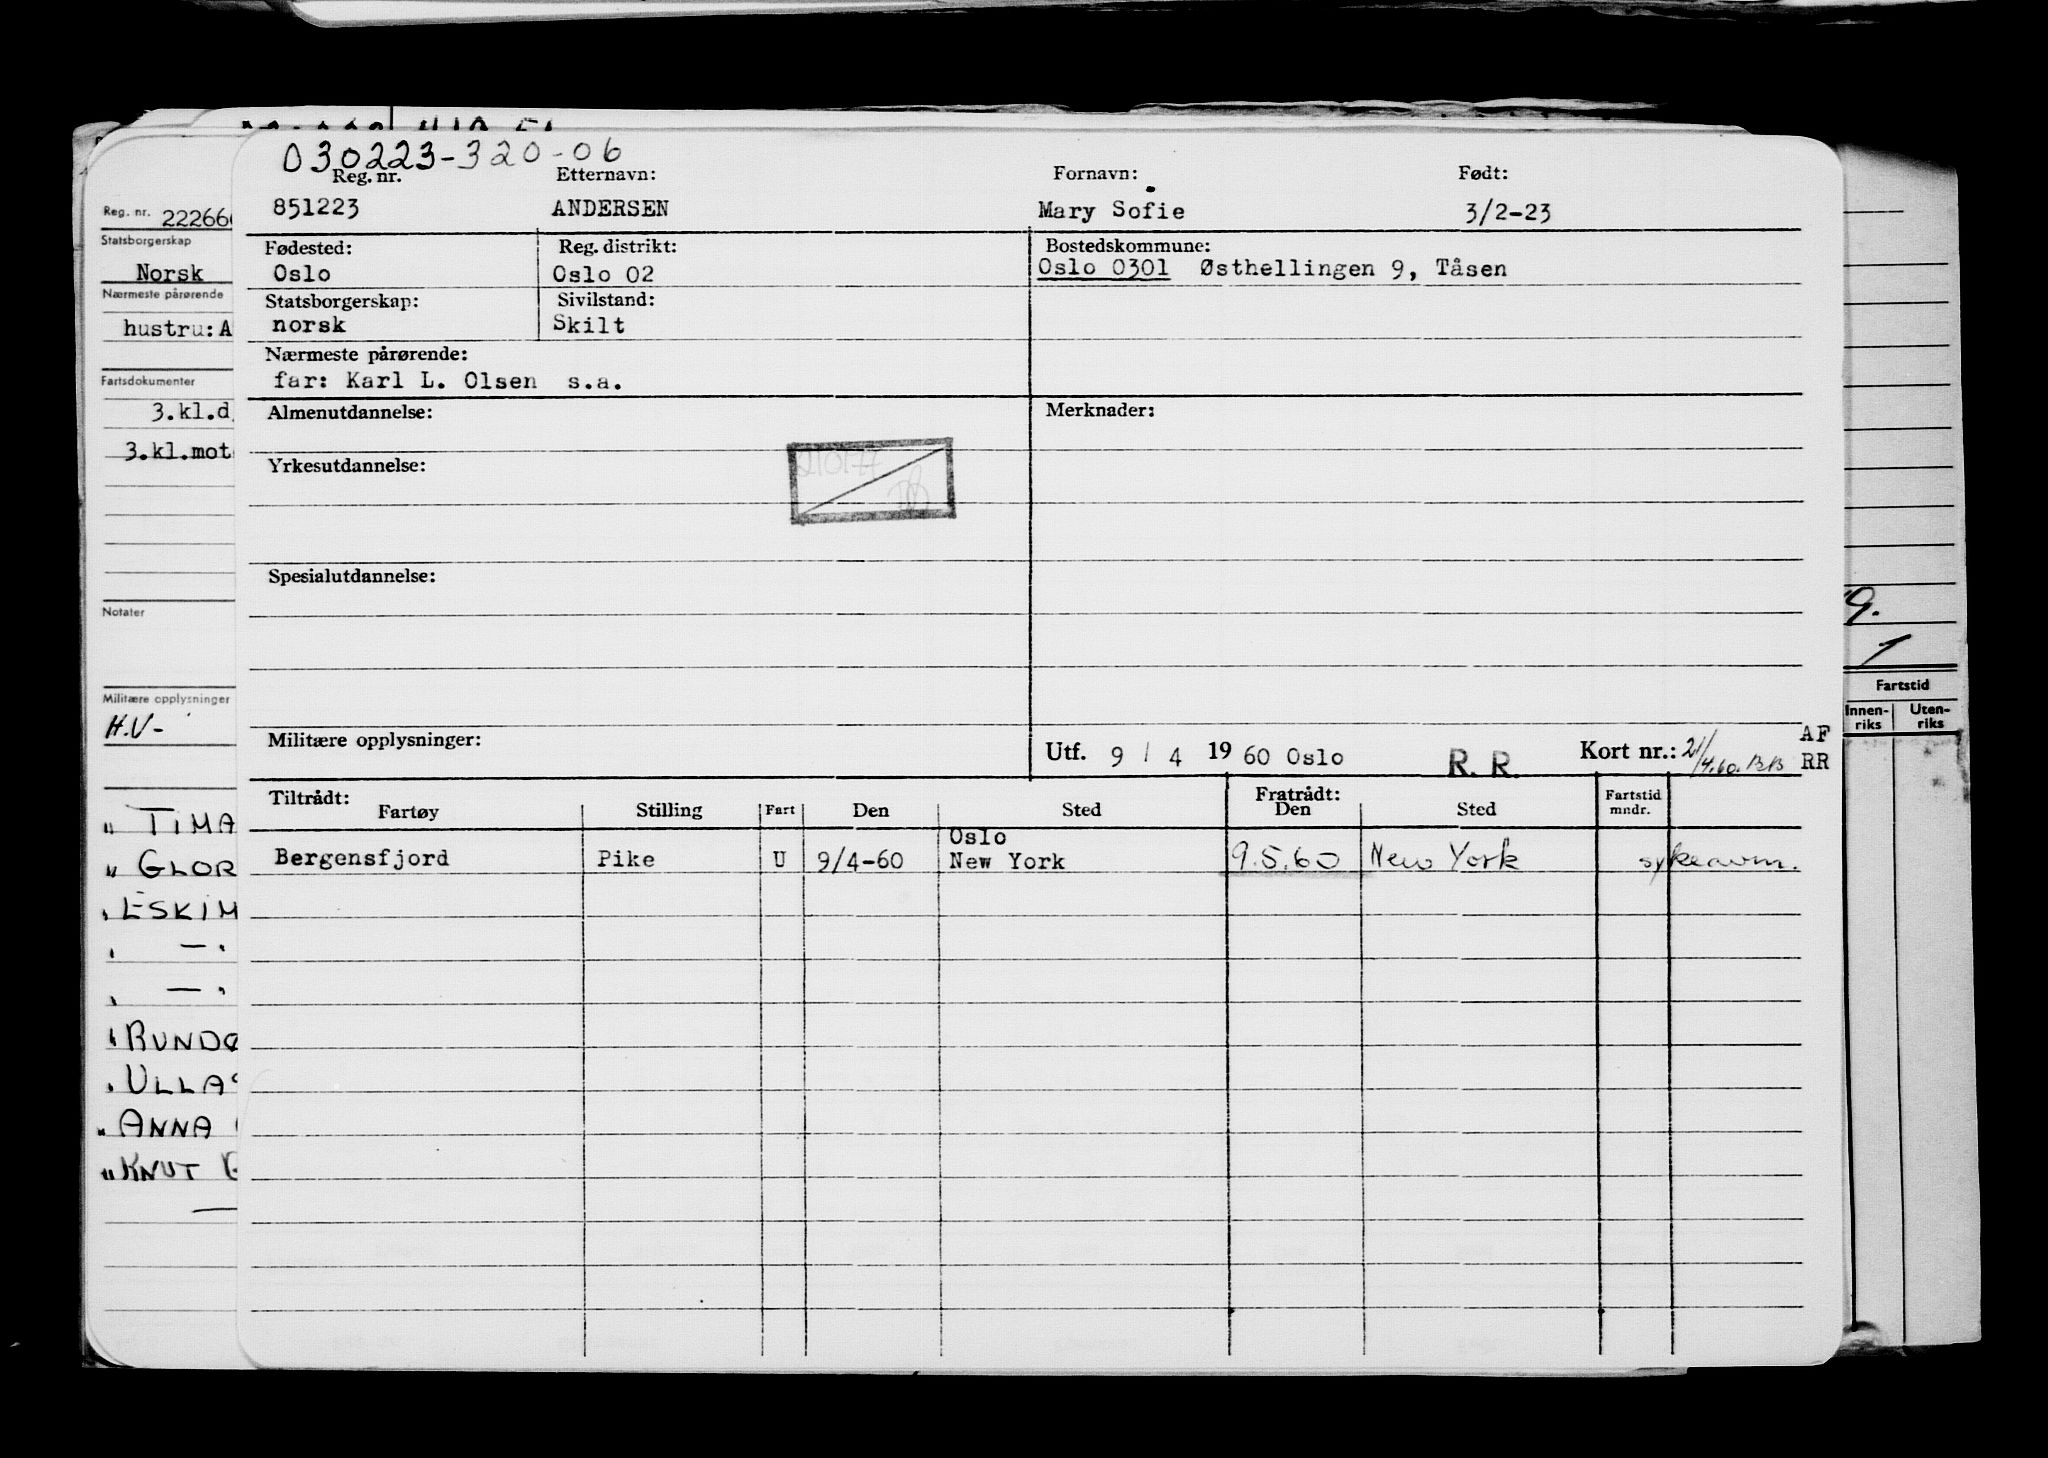 030223-320-06
Reg. nr. Etternavn: Fornavn: Født:
851223 ANDERSEN Mary Sofie 3/2-23
Fødested: Reg. distrikt: Bostedskommune:
Oslo Oslo 02 Oslo 0301 Østhellingen 9, Tåsen
Statsborgerskap: Sivilstand:
norsk Skilt
Nærmeste pårørende:
far: Karl L. Olsen s.a.
Almenutdannelse: Merknader:
Yrkesutdannelse:
210177
Spesialutdannelse:
Militære opplysninger: Utf. 9 / 4 1960 Oslo R. R. Kort nr.: 2/ AF
RR
Tiltrådt: Fratrådt: Fartstid
Fartøy Stilling Fart Den Sted Den Sted mndr.
Oslo
Bergensfjord Pike U 9/4-60 New York 9.5.60 New York sykeavm.
Reg. nr. 22266
Statsborgerskap
Norsk
Nærmeste pårørende
hustru: A
Fartsdokumenter
3.kl.d
3.kl.mot
Notater
Militære opplysninger
H.V-
" TIMA
" GLOR
ESKIM
— "
— "
RUNDØ
ULLAS
" ANNA
" KNUT
9.
Fartstid
Innen- Uten-
riks riks